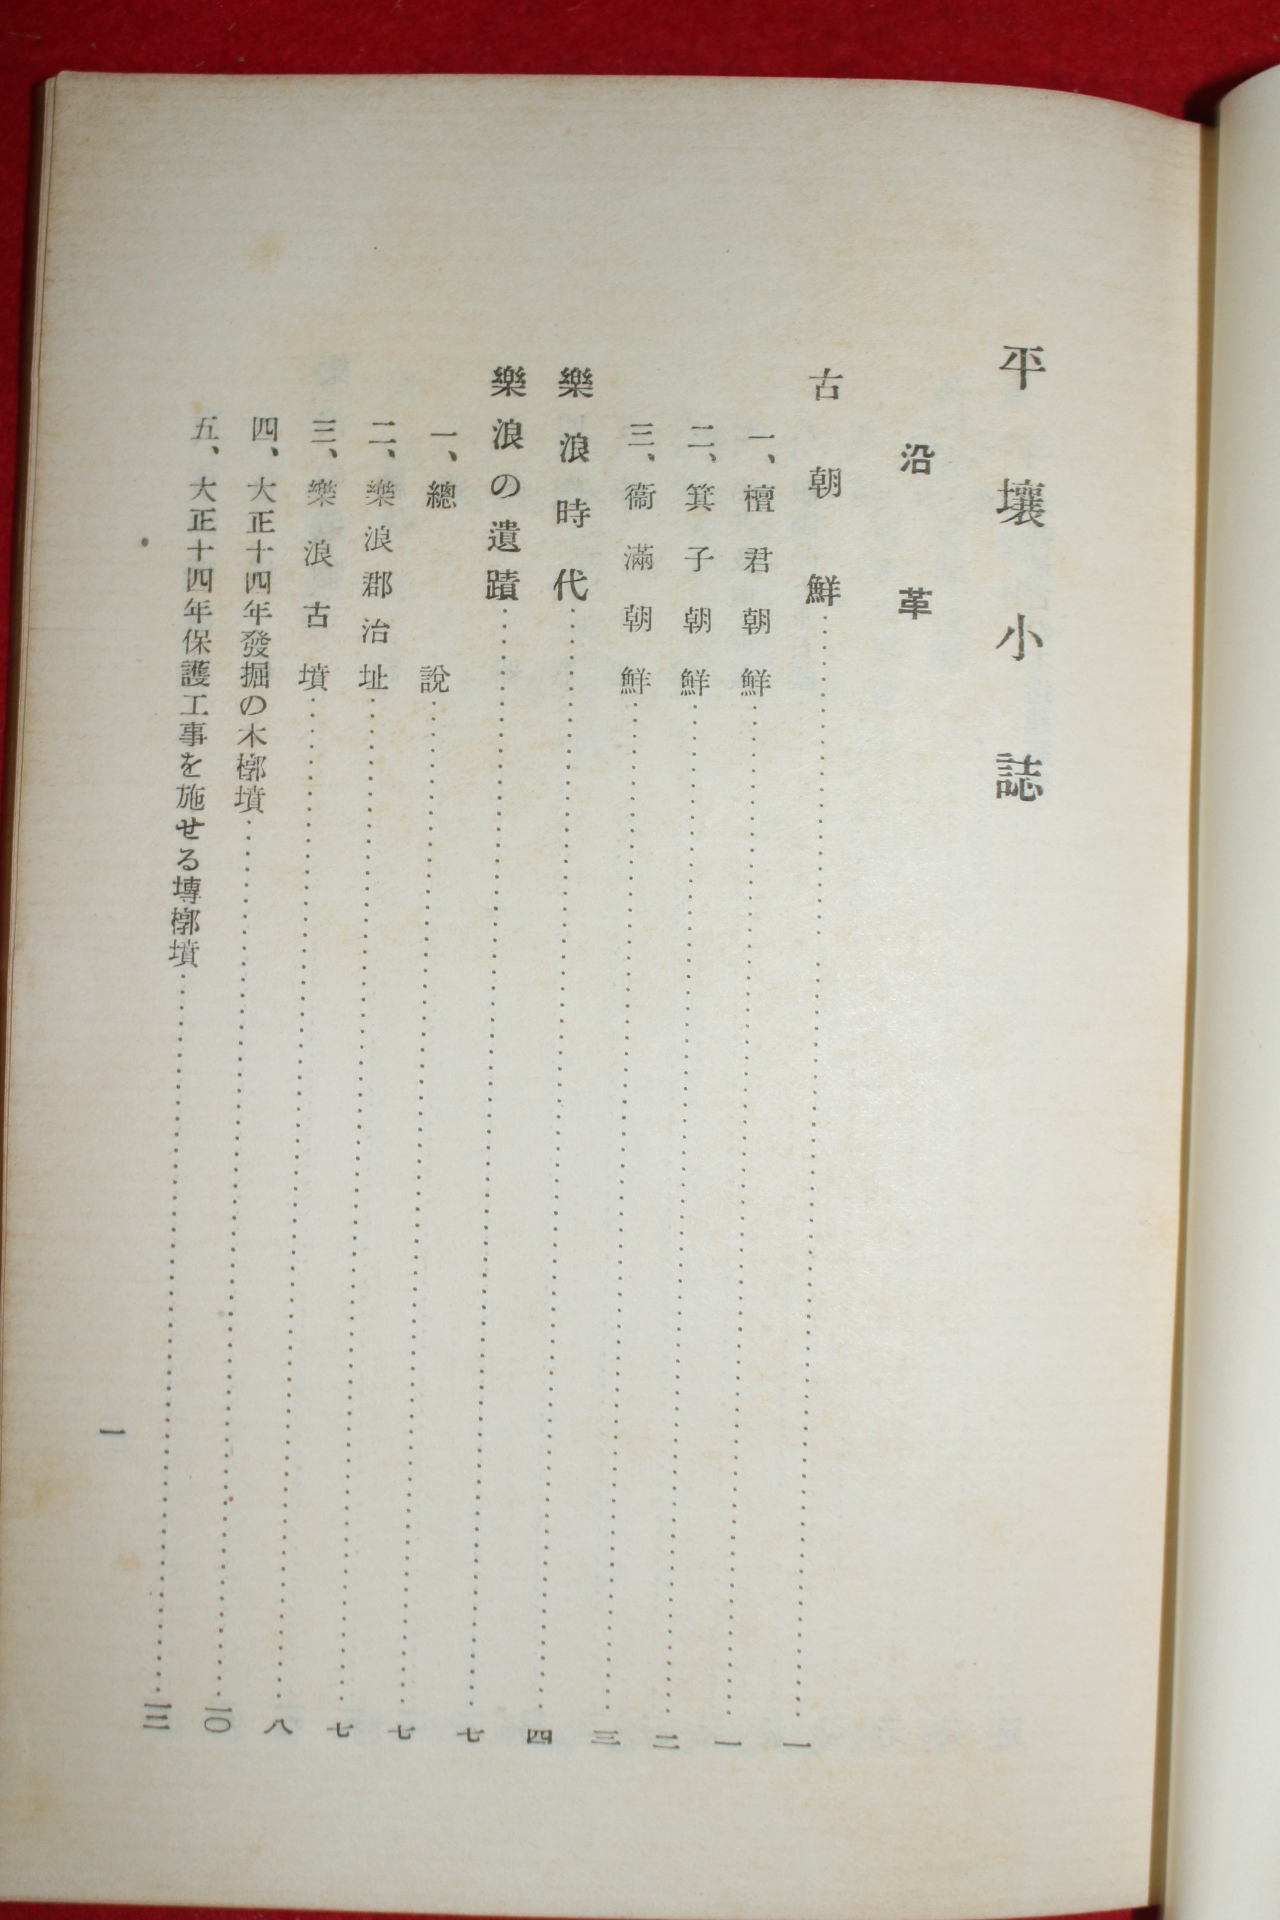 平壤小誌
沿革
古朝鮮……一
一、檀君朝鮮……一
二、箕子朝鮮……二
三、衞滿朝鮮……三
樂浪時代……四
樂浪の遺蹟……七
一、總說……七
二、樂浪郡治址……七
三、樂浪古墳……八
四、大正十四年發掘の木槨墳……一〇
五、大正十四年保護工事を施せる塼槨墳……一二
一